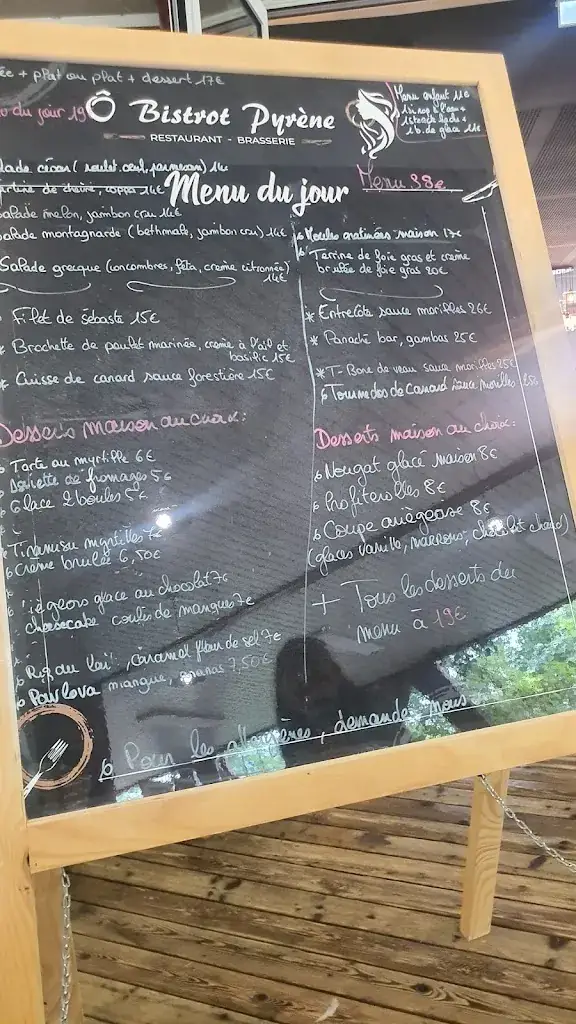 ée + plat ou plat + dessert 17€
du jour 19
Ô Bistrot Pyrène
RESTAURANT - BRASSERIE
Menu enfant 11€
Menu du jour
Menu 38€
lade césar (poulet, oeuf, parmesan) 14€
Salade melon, jambon cru 14€
Salade montagnarde (bethmale, jambon cru) 14€
Salade grecque (concombres, féta, crème citronnée)
14€
Filet de sébaste 15€
* Brochette de poulet marinée, crème à l'ail et
basilic 15€
* Cuisse de canard sauce forestière 15€
Desserts maison au choix:
Tarte au myrtille 6€
Assiette de fromages 5€
Glace 2 boules 5€
Tiramisu myrtilles 7€
Crème brulée 6,50€
Liégeois glace au chocolat 7€
cheesecake coulis de mangues 7€
Riz au lait, caramel fleur de sel 7€
Pavlova mangue, ananas 7,50€
Moules gratinées maison 17€
Terrine de foie gras et crème
brulée de foie gras 20€
* Entrecôte sauce morilles 26€
* Panaché bar, gambas 25€
* T-Bone de veau sauce morilles 25€
Tournedos de Canard sauce morilles
Desserts maison au choix:
Nougat glacé maison 8€
Profiterolles 8€
Coupe ariégeoise 8€
(glaces vanille, marrons, chocolat chaud)
+ Tous les desserts du
menu à 19€
Pour les allergènes, demandez nous